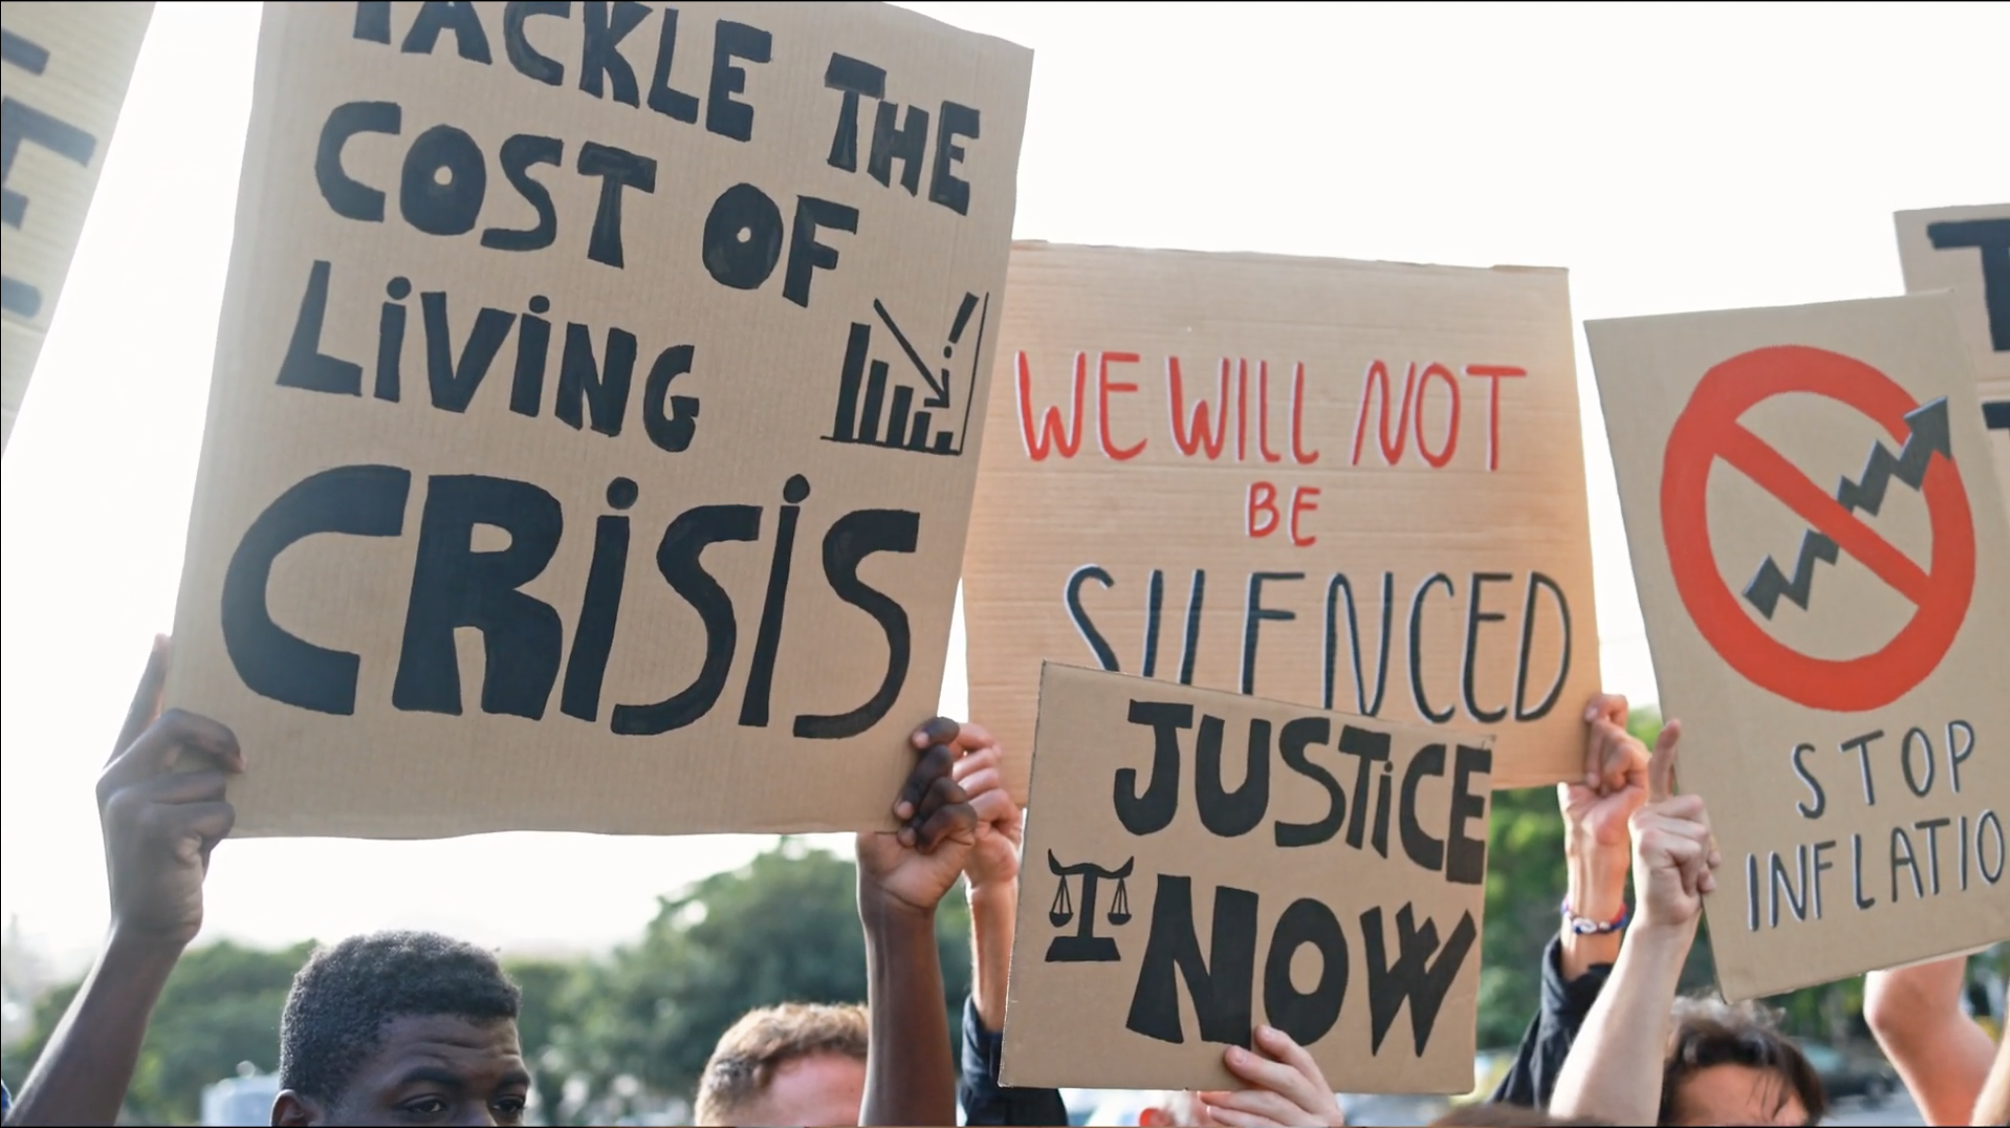 TACKLE THE
COST OF
LiViNG
CRiSiS
WE WILL NOT
BE
SILENCED
JUSTiCE
NOW
STOP
INFLATIO